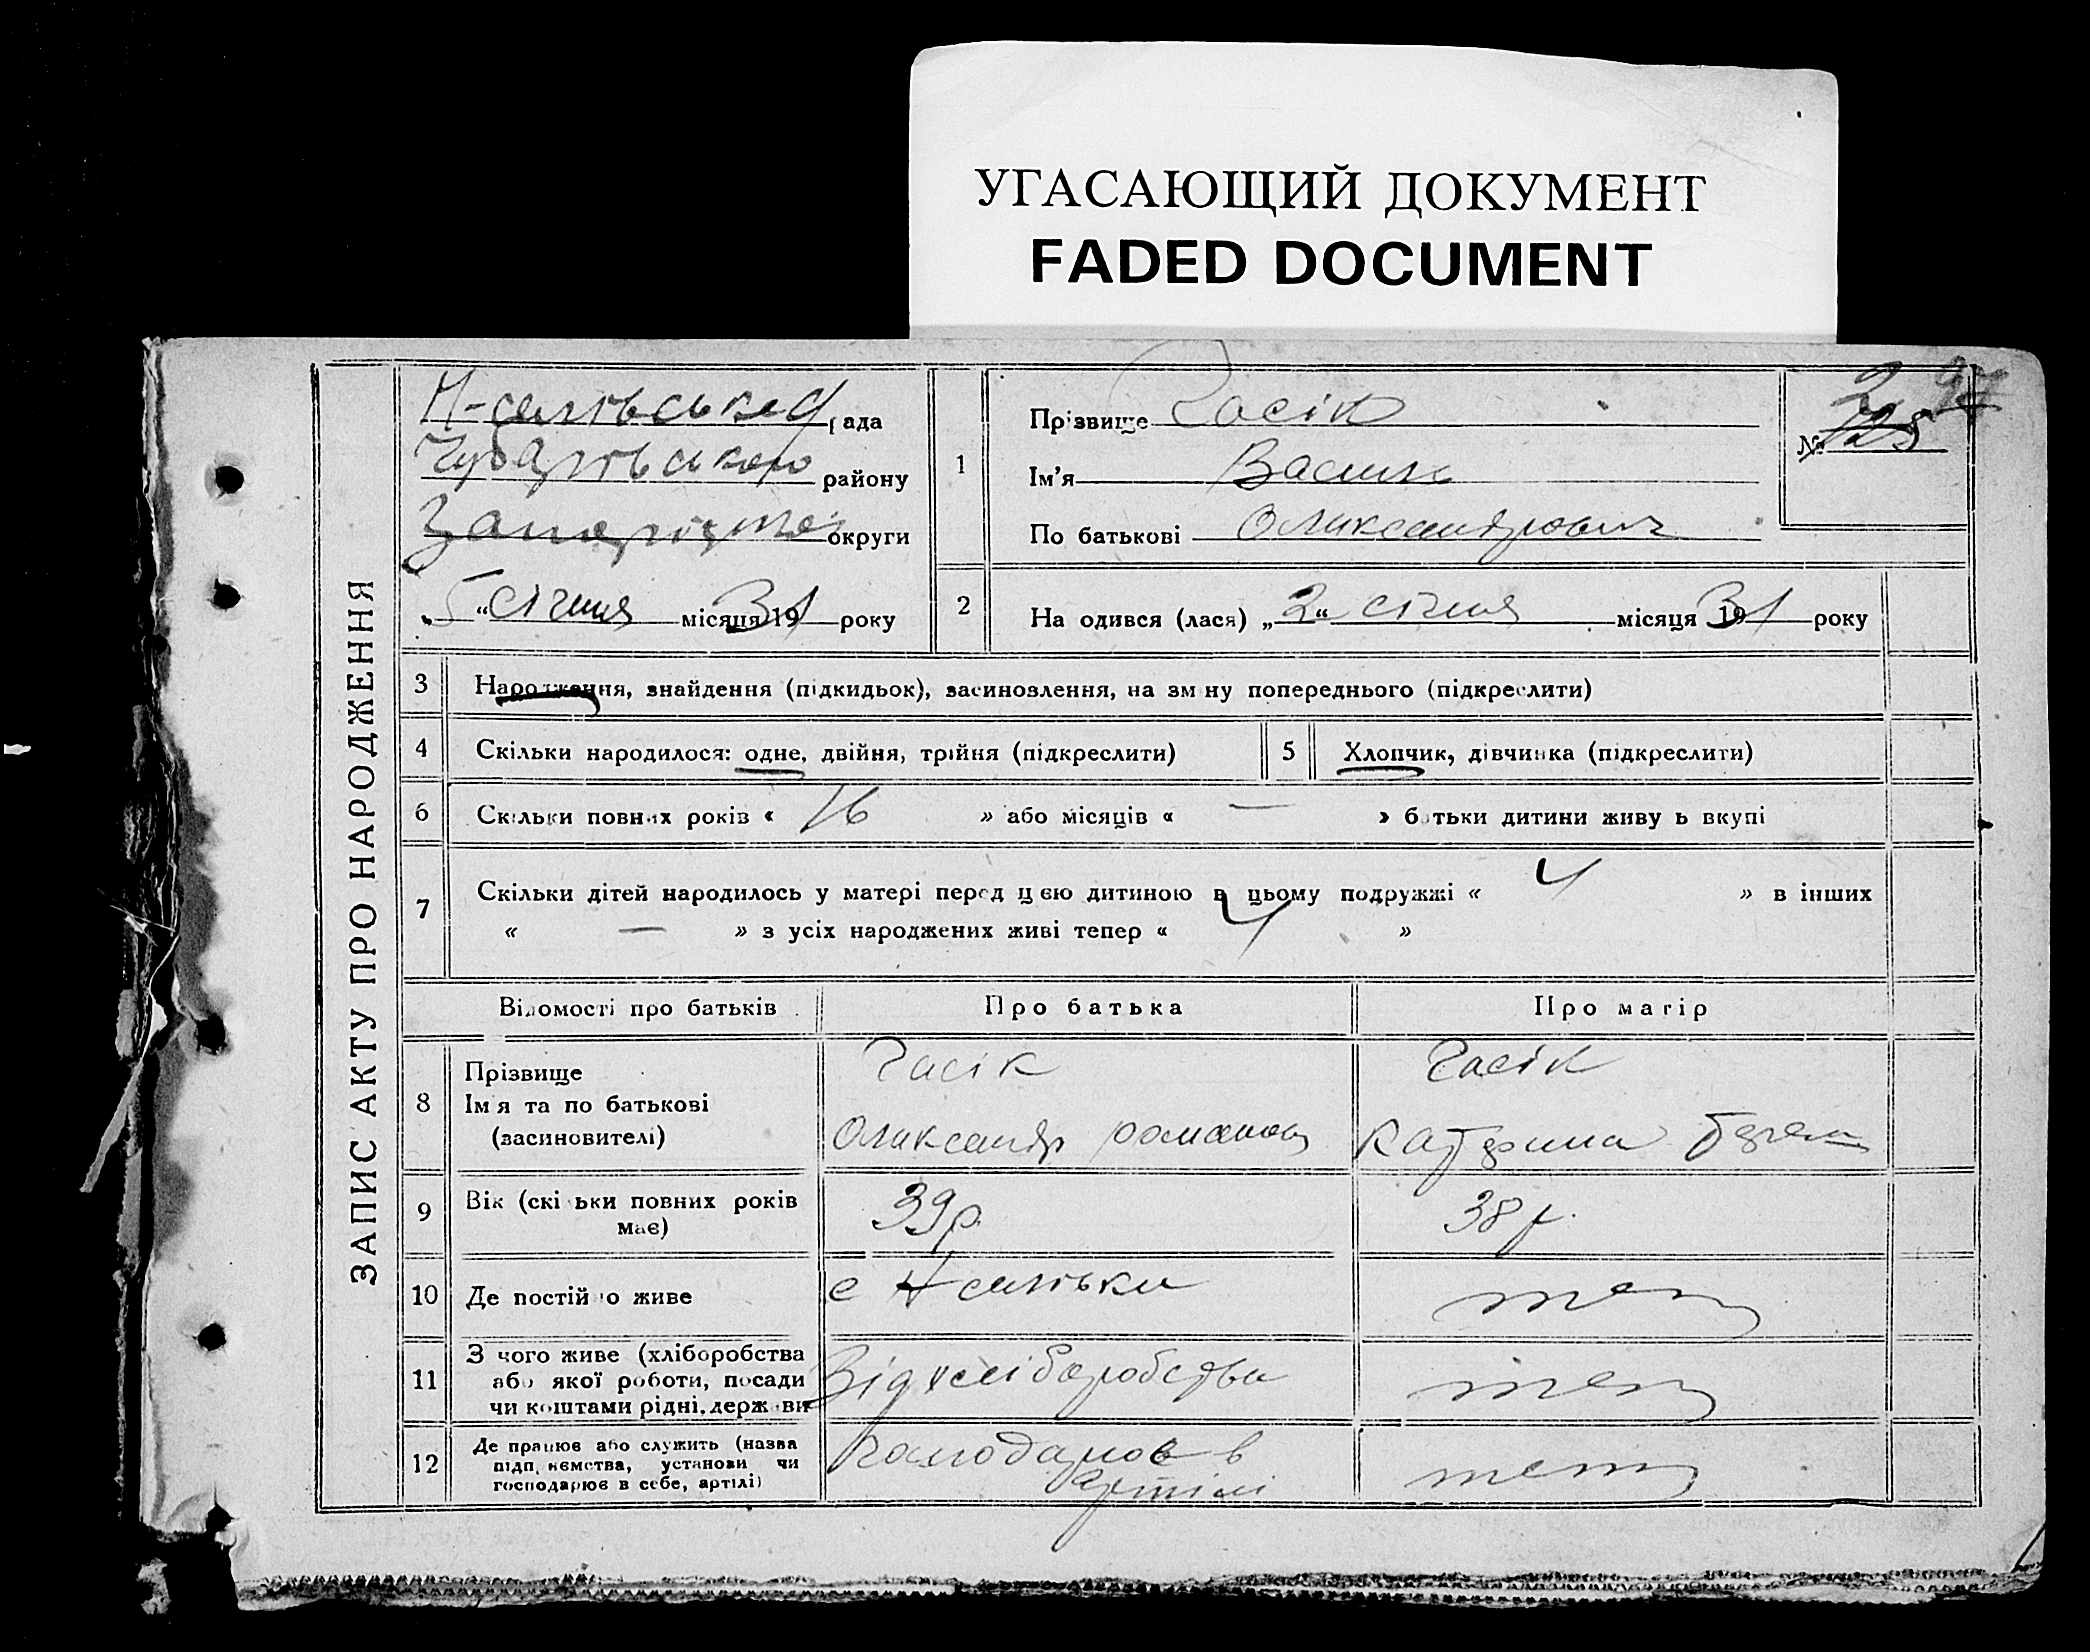 УГАСАЮЩИЙ ДОКУМЕНТ
FADED DOCUMENT
ЗАПИС АКТУ ПРО НАРОДЖЕННЯ
рада
Чубарівського району
округи
„5“ січня місяця 1931 року
1
Прізвище Гасік
Ім'я Василь
По батькові Олександрович
№
2
Народився (лася) „2“ січня місяця 1931 року
3 Народження, знайдення (підкидьок), засиновлення, на зміну попереднього (підкреслити)
4 Скільки народилося: одне, двійня, трійня (підкреслити)
5 Хлопчик, дівчинка (підкреслити)
6 Скільки повних років « 16 » або місяців « — » батьки дитини живуть вкупі
7 Скільки дітей народилось у матері перед цією дитиною в цьому подружжі « 4 » в інших
« — » з усіх народжених живі тепер « 4 »
Відомості про батьків Про батька Про матір
8 Прізвище Гасік Гасік
Ім'я та по батькові Олександр Романов Катерина
(засиновителі)
9 Вік (скільки повних років має) 39 р. 38 р.
10 Де постійно живе с
11 З чого живе (хліборобства
або якої роботи, посади
чи коштами рідні, держави Від хліборобства
12 Де працює або служить (назва
підприємства, установи чи
господарює в себе, артілі) в
артілі